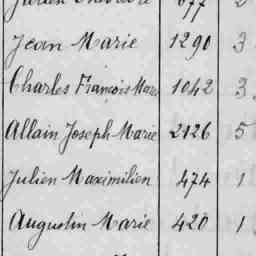 Jean Marie 1290 3
Charles François Marie 1042 3
Allain Joseph Marie 2126 5
Julien Maximilien 474 1
Augustin Marie 420 1